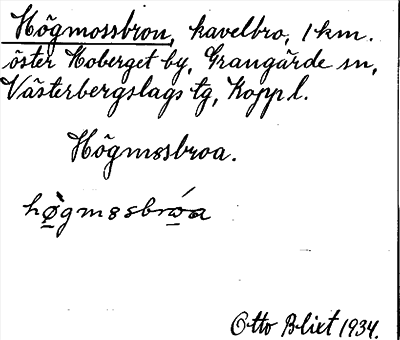 Högmossbron, kavelbro, 1 km.
öster Hoberget by, Grangärde sn,
Västerbergslags tg, Koppl.
Högmossbroa.
Otto Blixt 1934.